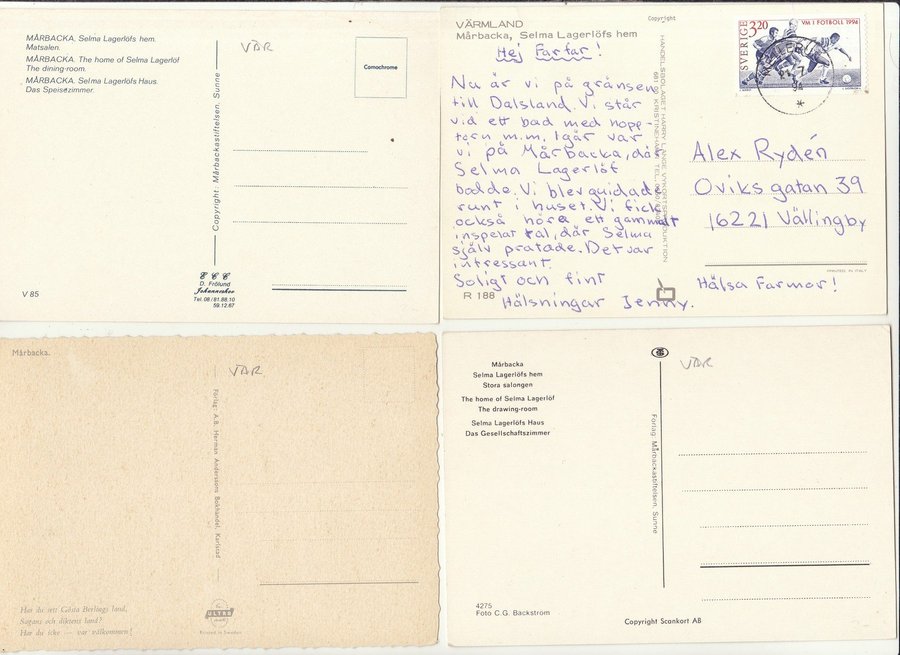 MÅRBACKA, Selma Lagerlöfs hem.
Matsalen.
MÅRBACKA. The home of Selma Lagerlöf
The dining-room.
MÅRBACKA. Selma Lagerlöfs Haus.
Das Speisezimmer.
VÄR
Comochrome
Copyright: Mårbackastiftelsen. Sunne
E C C
D. Frölund
Johanneshov
Tel. 08/81.88.10
59.12.67
V 85
VÄRMLAND
Mårbacka, Selma Lagerlöfs hem
Copyright
Hej Farfar!
Nu är vi på gränsen
till Dalsland. Vi står
vid ett bad med hopp-
torn m.m. Igår var
vi på Mårbacka, där
Selma Lagerlöf
bodde. Vi blev guidade
runt i huset. Vi fick
också höra ett gammalt
inspelat tal, där Selma
själv pratade. Det var
intressant.
Soligt och fint
Hälsningar Jenny.
R 188
HANDELSBOLAGET HARRY LANGE VYKORTSPRODUKTION
SVERIGE 3.20
VM I FOTBOLL 1994
Alex Rydén
Oviksgatan 39
16221 Vällingby
PRINTED IN ITALY
Hälsa Farmor!
Mårbacka.
VÄR
Förlag: A.-B. Herman Anderssons Bokhandel, Karlstad
Har du sett Gösta Berlings land,
Sagans och diktens land?
Har du icke — var välkommen!
ULTRA
Printed in Sweden
Mårbacka
Selma Lagerlöfs hem
Stora salongen
The home of Selma Lagerlöf
The drawing-room
Selma Lagerlöfs Haus
Das Gesellschaftszimmer
VÄR
Förlag: Mårbackastiftelsen, Sunne
4275
Foto C.G. Backstrom
Copyright Scankort AB